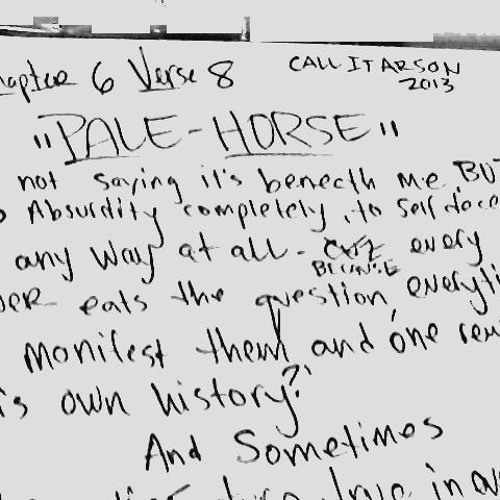 hapter 6 Verse 8
CALL IT ARSON
2013
"PALE-HORSE"
not saying it's beneath me BUT
Absurdity completely, to self dece
any way at all - every
BECAUSE
eats the question, everythi
manifest them and one
is own history?
And Sometimes
in